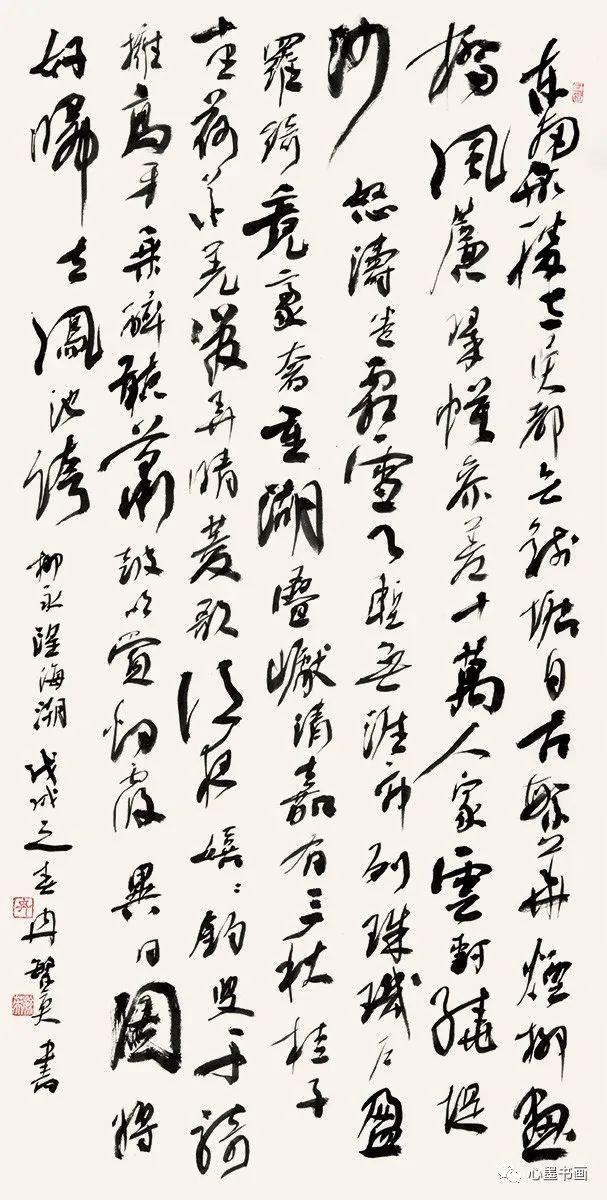 東南形勝三吴都會錢塘自古繁華煙柳畫
橋風簾翠幙参差十萬人家雲樹繞堤
沙怒濤卷霜雪天塹無涯市列珠璣户盈
羅綺競豪奢重湖疊巘清嘉有三秋桂子
十里荷花羌管弄晴菱歌泛夜嬉〻釣叟千騎
擁高牙乘醉聽簫鼓吟賞烟霞異日圖將
好歸去鳳池誇
柳永望海潮 戊戌之春冉書
心墨书画